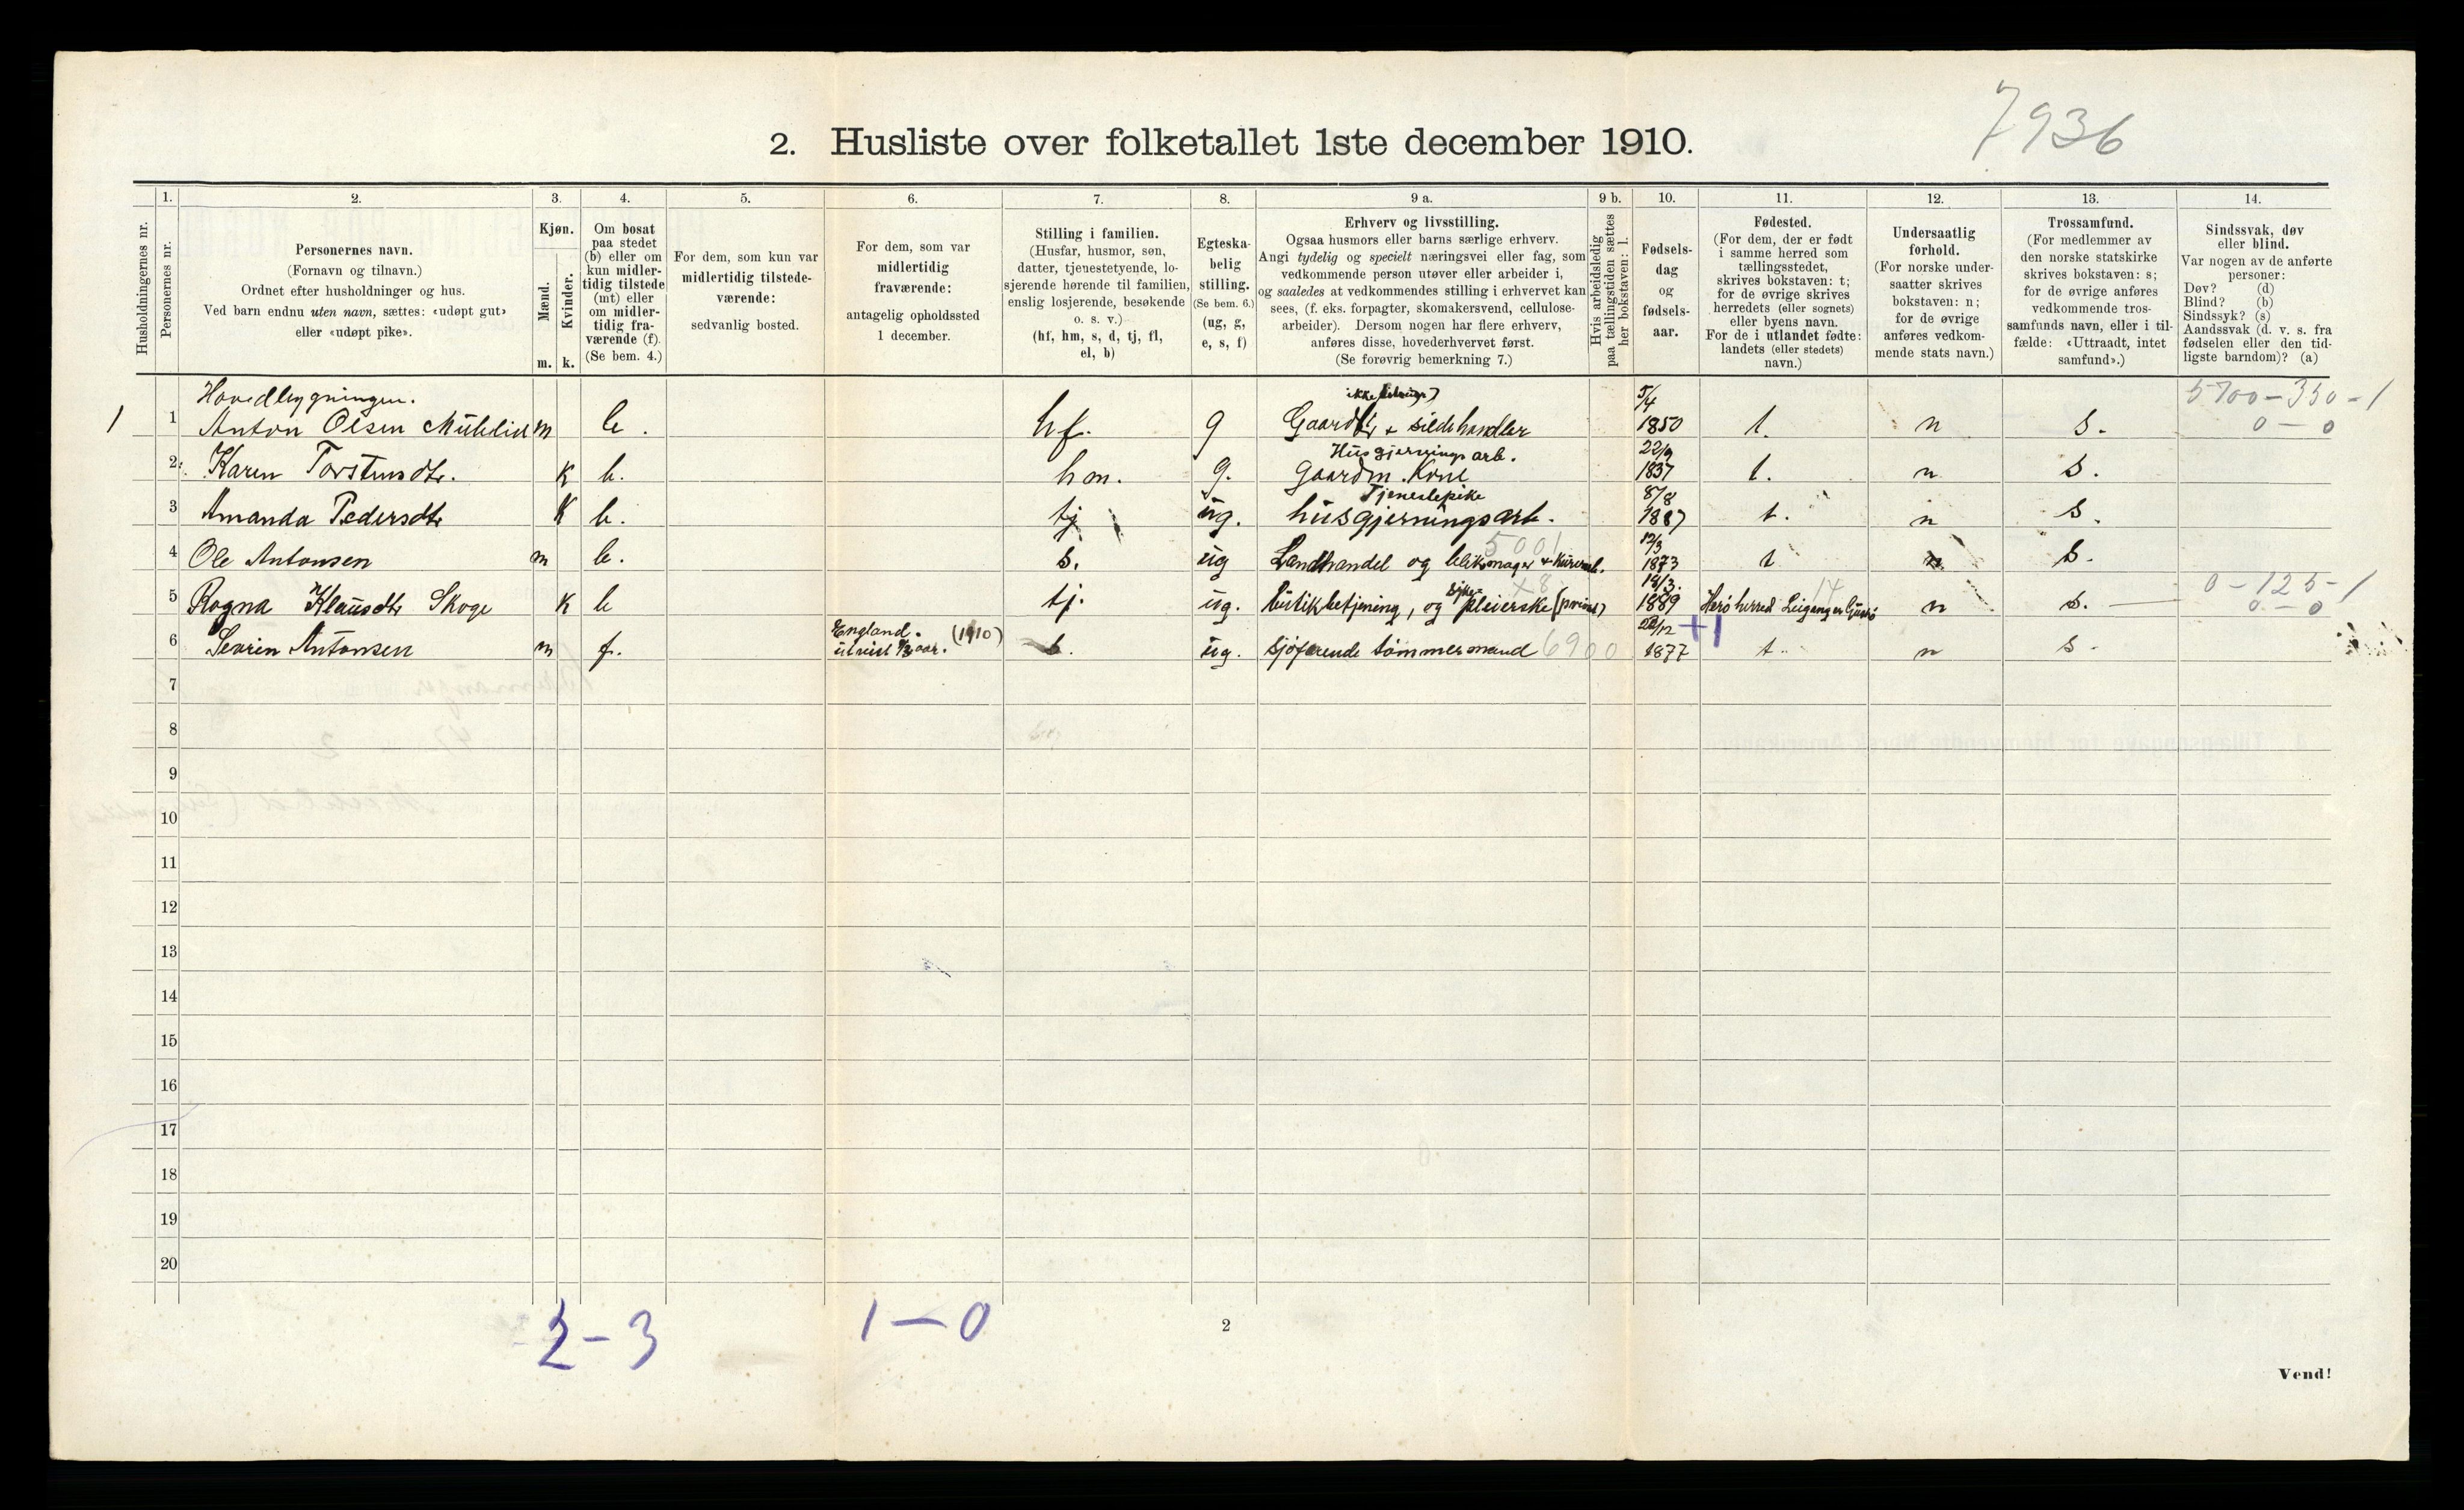 7936
2. Husliste over folketallet 1ste december 1910.
Husholdningernes nr.
1.
Personernes nr.
2.
Personernes navn.
(Fornavn og tilnavn.)
Ordnet efter husholdninger og hus.
Ved barn endnu uten navn, sættes: «udøpt gut»
eller «udøpt pike».
3.
Kjøn.
Mænd.
Kvinder.
m. k.
4.
Om bosat
paa stedet
(b) eller om
kun midler-
tidig tilstede
(mt) eller
om midler-
tidig fra-
værende (f).
(Se bem. 4.)
5.
For dem, som kun var
midlertidig tilstede-
værende:
sedvanlig bosted.
6.
For dem, som var
midlertidig
fraværende:
antagelig opholdssted
1 december.
7.
Stilling i familien.
(Husfar, husmor, søn,
datter, tjenestetyende, lo-
sjerende hørende til familien,
enslig losjerende, besøkende
o. s. v.)
(hf, hm, s, d, tj, fl,
el, b)
8.
Egteska-
belig
stilling.
(Se bem. 6.)
(ug, g,
e, s, f)
9 a.
Erhverv og livsstilling.
Ogsaa husmors eller barns særlige erhverv.
Angi tydelig og specielt næringsvei eller fag, som
vedkommende person utøver eller arbeider i,
og saaledes at vedkommendes stilling i erhvervet kan
sees, (f. eks. forpagter, skomakersvend, cellulose-
arbeider). Dersom nogen har flere erhverv,
anføres disse, hovederhvervet først.
(Se forøvrig bemerkning 7.)
9 b.
Hvis arbeidsledig
paa tællingstiden sættes
her bokstaven: l.
10.
Fødsels-
dag
og
fødsels-
aar.
11.
Fødested.
(For dem, der er født
i samme herred som
tællingsstedet,
skrives bokstaven: t;
for de øvrige skrives
herredets (eller sognets)
eller byens navn.
For de i utlandet fødte:
landets (eller stedets)
navn.)
12.
Undersaatlig
forhold.
(For norske under-
saatter skrives
bokstaven: n;
for de øvrige
anføres vedkom-
mende stats navn.)
13.
Trossamfund.
(For medlemmer av
den norske statskirke
skrives bokstaven: s;
for de øvrige anføres
vedkommende tros-
samfunds navn, eller i til-
fælde: «Uttraadt, intet
samfund».)
14.
Sindssvak, døv
eller blind.
Var nogen av de anførte
personer:
Døv? (d)
Blind? (b)
Sindssyk? (s)
Aandssvak (d. v. s. fra
fødselen eller den tid-
ligste barndom)? (a)
Hovedbygningen.
1 1 Anton Olsen m b. hf. g Gaardbr + sildehandler 5/4 1850 t. n s. 5700-350-1 0-0
2 Karen Torstensdtr. k b. hm. g. Husgjerningsarb. gaardm. Kone 22/9 1837 t. n s.
3 Amanda Pedersdtr k b. tj ug. Tjenestepike husgjerningsarb. 8/8 1887 t. n s.
4 Ole Antonsen m b. s. ug Landhandel og 5001 12/3 1873 t n s.
5 Ragna Klausdtr Skoge k b tj. ug. butikbetjening, og syke- pleierske (privat) 18/3. 1889 Herø herred n s. 0-125-1 0-0
6 Sevrin Antonsen m f. England. (1910) s. ug. sjøfarende tømmermand 6900 1877 +1 t. n s.
7
8
9
10
11
12
13
14
15
16
17
18
19
20
2-3 1-0
2
Vend!